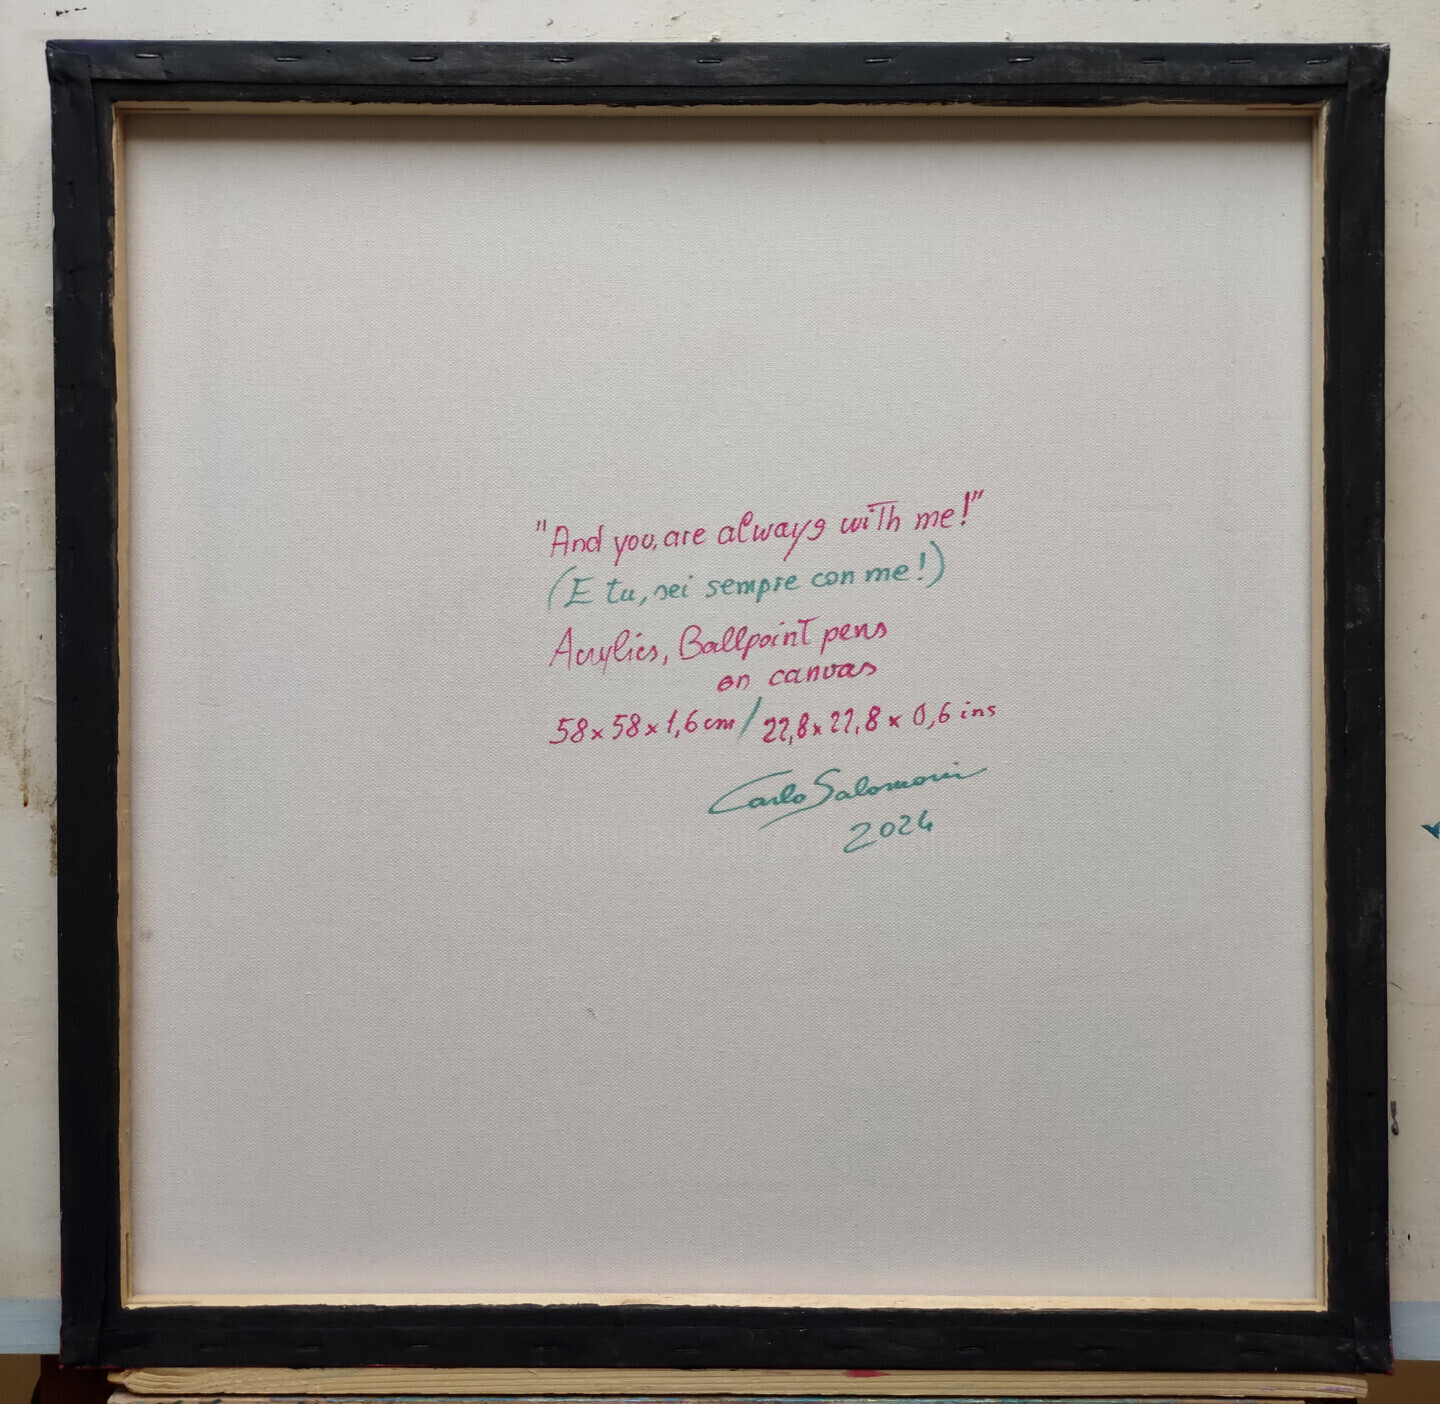 "And you, are always with me!"
(E tu, sei sempre con me!)
Acrylics, Ballpoint pens
on canvas
58x58x1,6 cm / 22,8x22,8x0,6 ins
Carlo Salomoni
2024